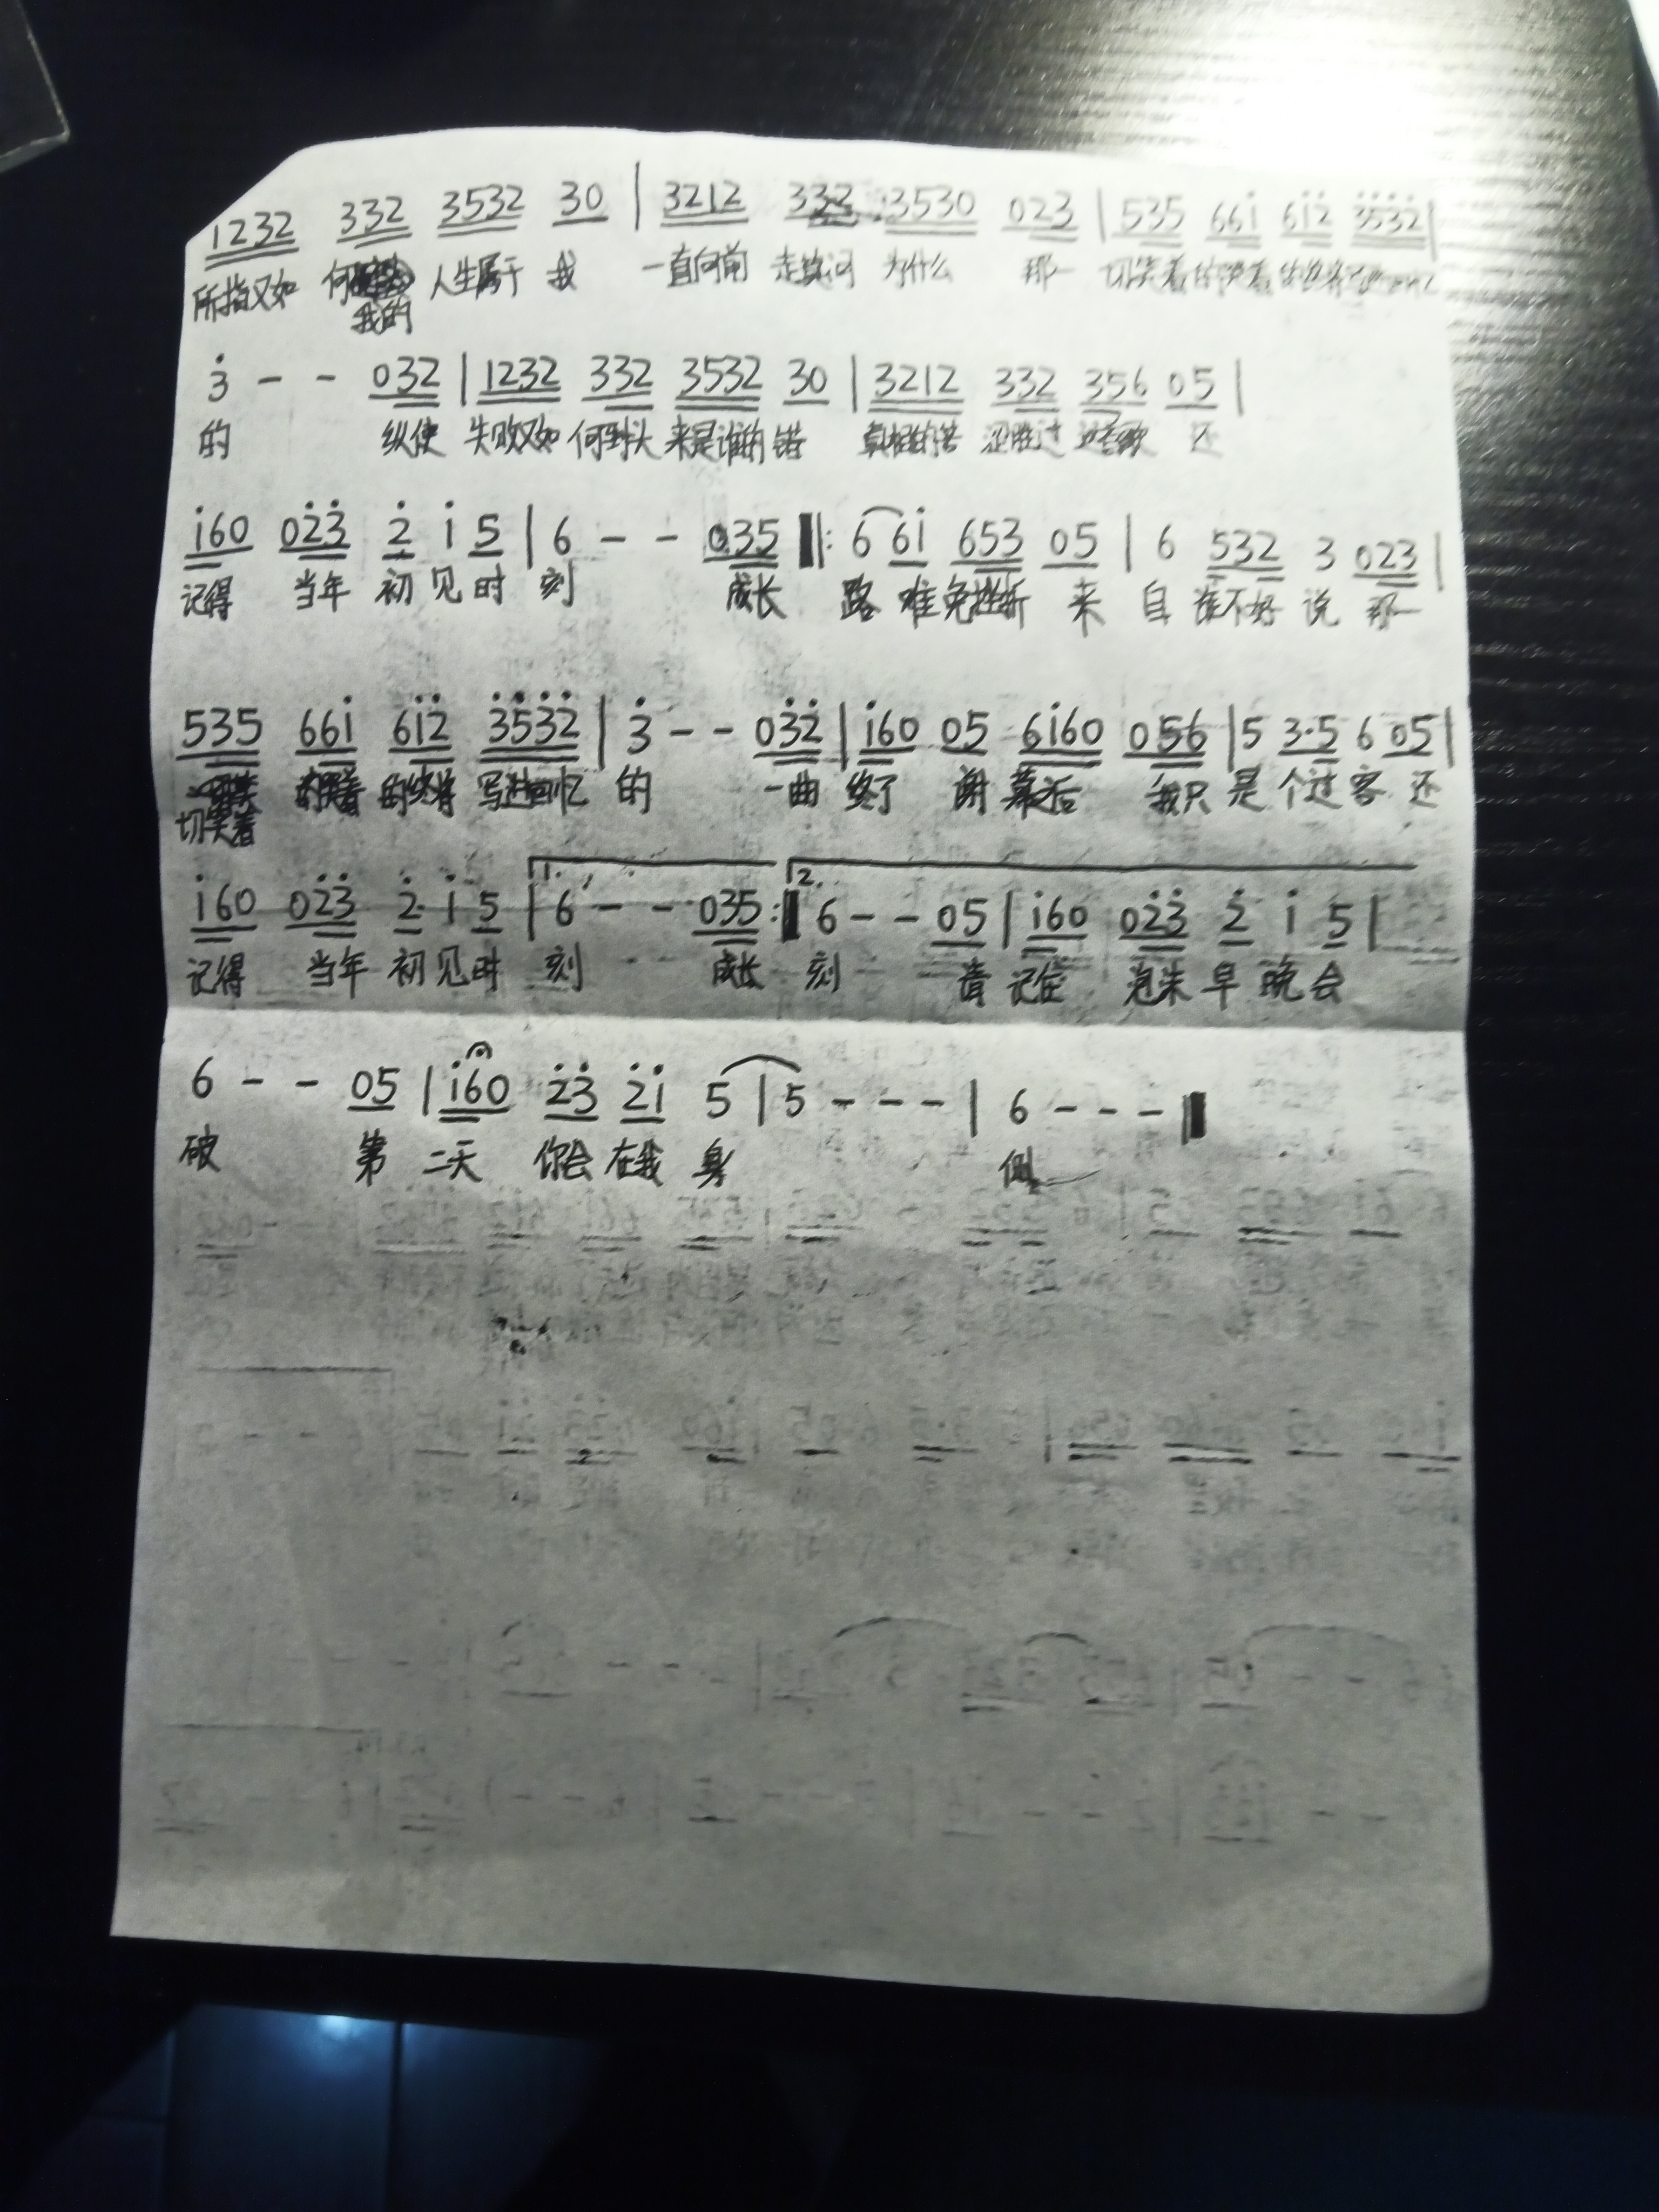 1232 332 3532 30 | 3212 332 3530 023 | 535 66i 6i2̇ 3̇5̇3̇2̇ |
所指又如 何 人生属于 我 一直向前 走 问 为什么 那一 切笑着的哭着
我的
3̇ - - 032 | 1232 332 3532 30 | 3212 332 356 05 |
的 纵使 失败又如 何到头 来是谁的 错 真相的苦 还胜过 还
i60 02̇3̇ 2̇ i 5 | 6 - - 035 ‖: 6 6i 653 05 | 6 532 3 023 |
记得 当年 初 见 时 刻 成长 路 难免挫折 来 自 谁不好 说 那一
535 66i 6i2̇ 3̇5̇3̇2̇ | 3̇ - - 03̇2̇ | i60 05 6i60 056 | 5 3·5 6 05 |
的哭着 的终将 写进回忆 的 一曲 终了 谢 幕后 我只 是 个过 客 还
切笑着
1. 2.
i60 02̇3̇ 2̇ i 5 | 6 - - 035 :‖ 6 - - 05 | i60 02̇3̇ 2̇ i 5 |
记得 当年 初 见 时 刻 成长 刻 请 记住 泡沫 早 晚 会
6 - - 05 | i60 2̇3̇ 2̇i 5 | 5 - - - | 6 - - - ‖
破 第 二天 你会 在我 身 侧